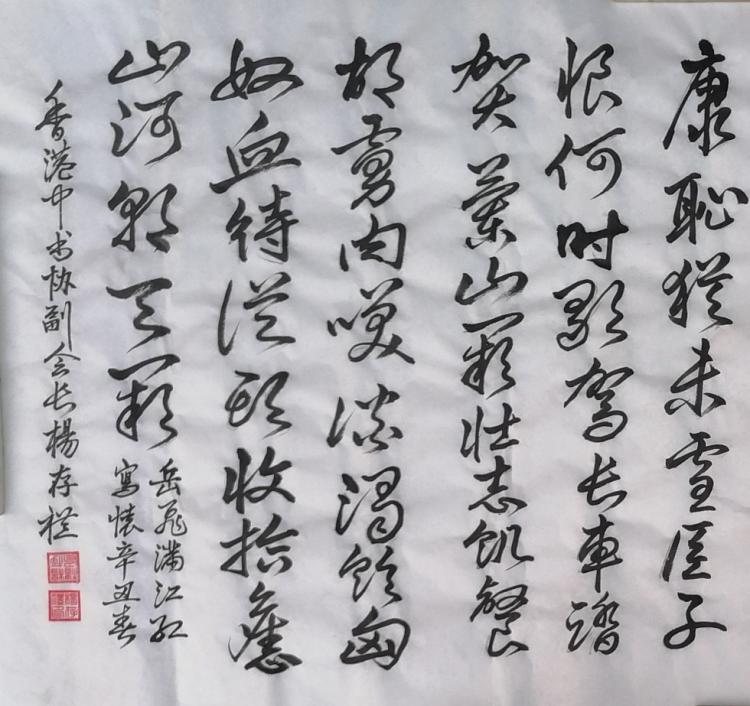 康恥猶未雪臣子
恨何时灭驾长車踏
贺蘭山阙壮志飢餐
胡虜肉笑谈渴饮匈
奴血待从头收拾舊
山河朝天阙
岳飛满江红
寫懷辛丑春
香港中书协副会长楊存栏